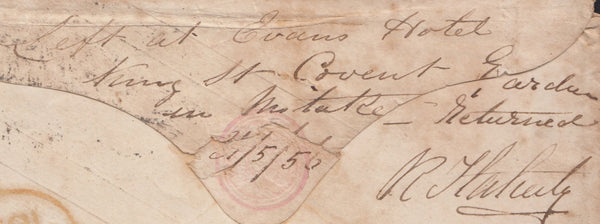 Left at Evans Hotel
King St Covent Garden
in Mistake - Returned
21/5/50
R